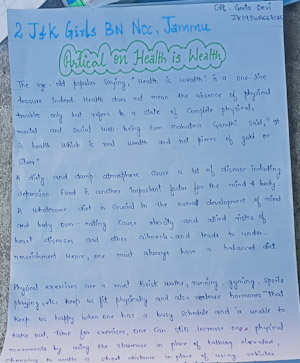 CPL. Geeta Devi
2 J&K Girls BN NCC, Jammu
Artical on Health is Wealth
The age-old popular saying, "Health is wealth" is a one-line
treasure indeed. Health does not mean the absence of physical
troubles only but refers to a state of complete physical,
mental and social well-being. Even mahatma Gandhi said, "It
is health which is real wealth and not pieces of gold or
silver."
A dirty and damp atmosphere cause a lot of disease including
depression. Food is another important factor for the mind & body.
A wholesome diet is crucial in the overall development of mind
and body over-eating cause obesity and allied risks of
heart diseases and other ailments and leads to under-
nourishment Hence, one must always have a balanced diet.
Physical exercises are a must. Brisk walks, running, gyming, sports
playing, etc. keep us fit physically and also release hormones that
keep us happy when one has a busy schedule and is unable to
take out, time for exercises, one can still increase one's physical
movements by using the staircase in place of taking elevator,
choosing to walk a short distance in place of using vehicles